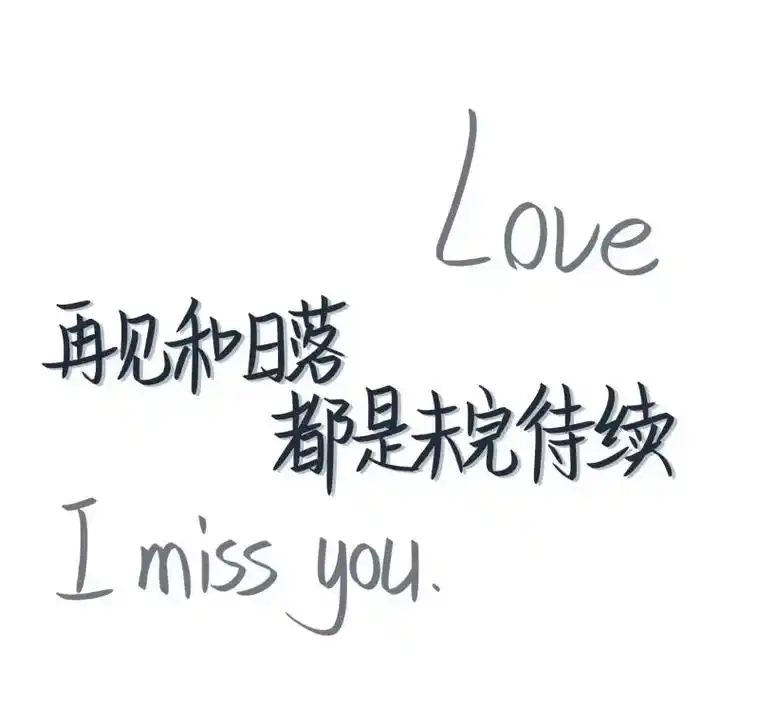 Love
再见和日落
都是未完待续
I miss you.